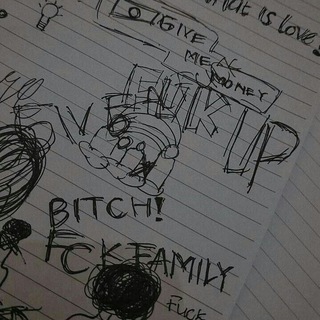 what is Love?
GIVE
ME
MONEY
FUCK UP
BITCH!
FCK FAMILY
FUCK